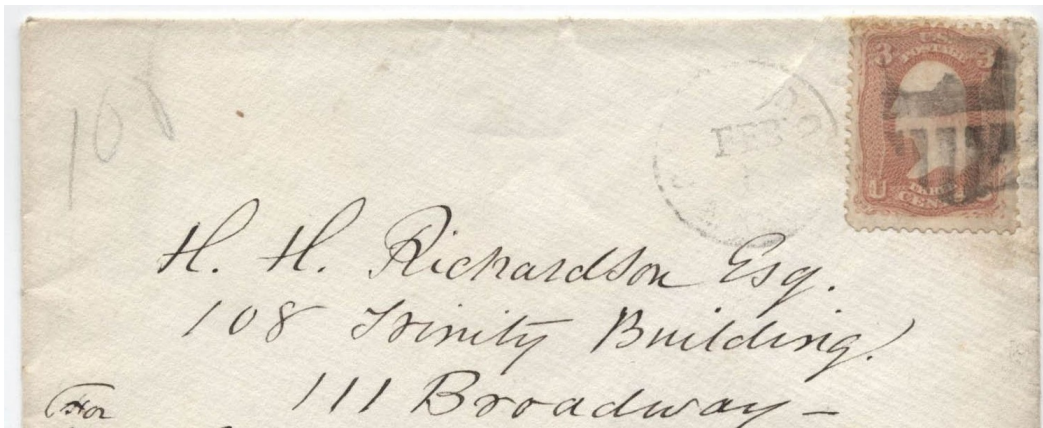 108
3 U.S. 3
POSTAGE
FEB
U CENTS
H. H. Richardson Esq.
108 Trinity Building.
111 Broadway –
(For